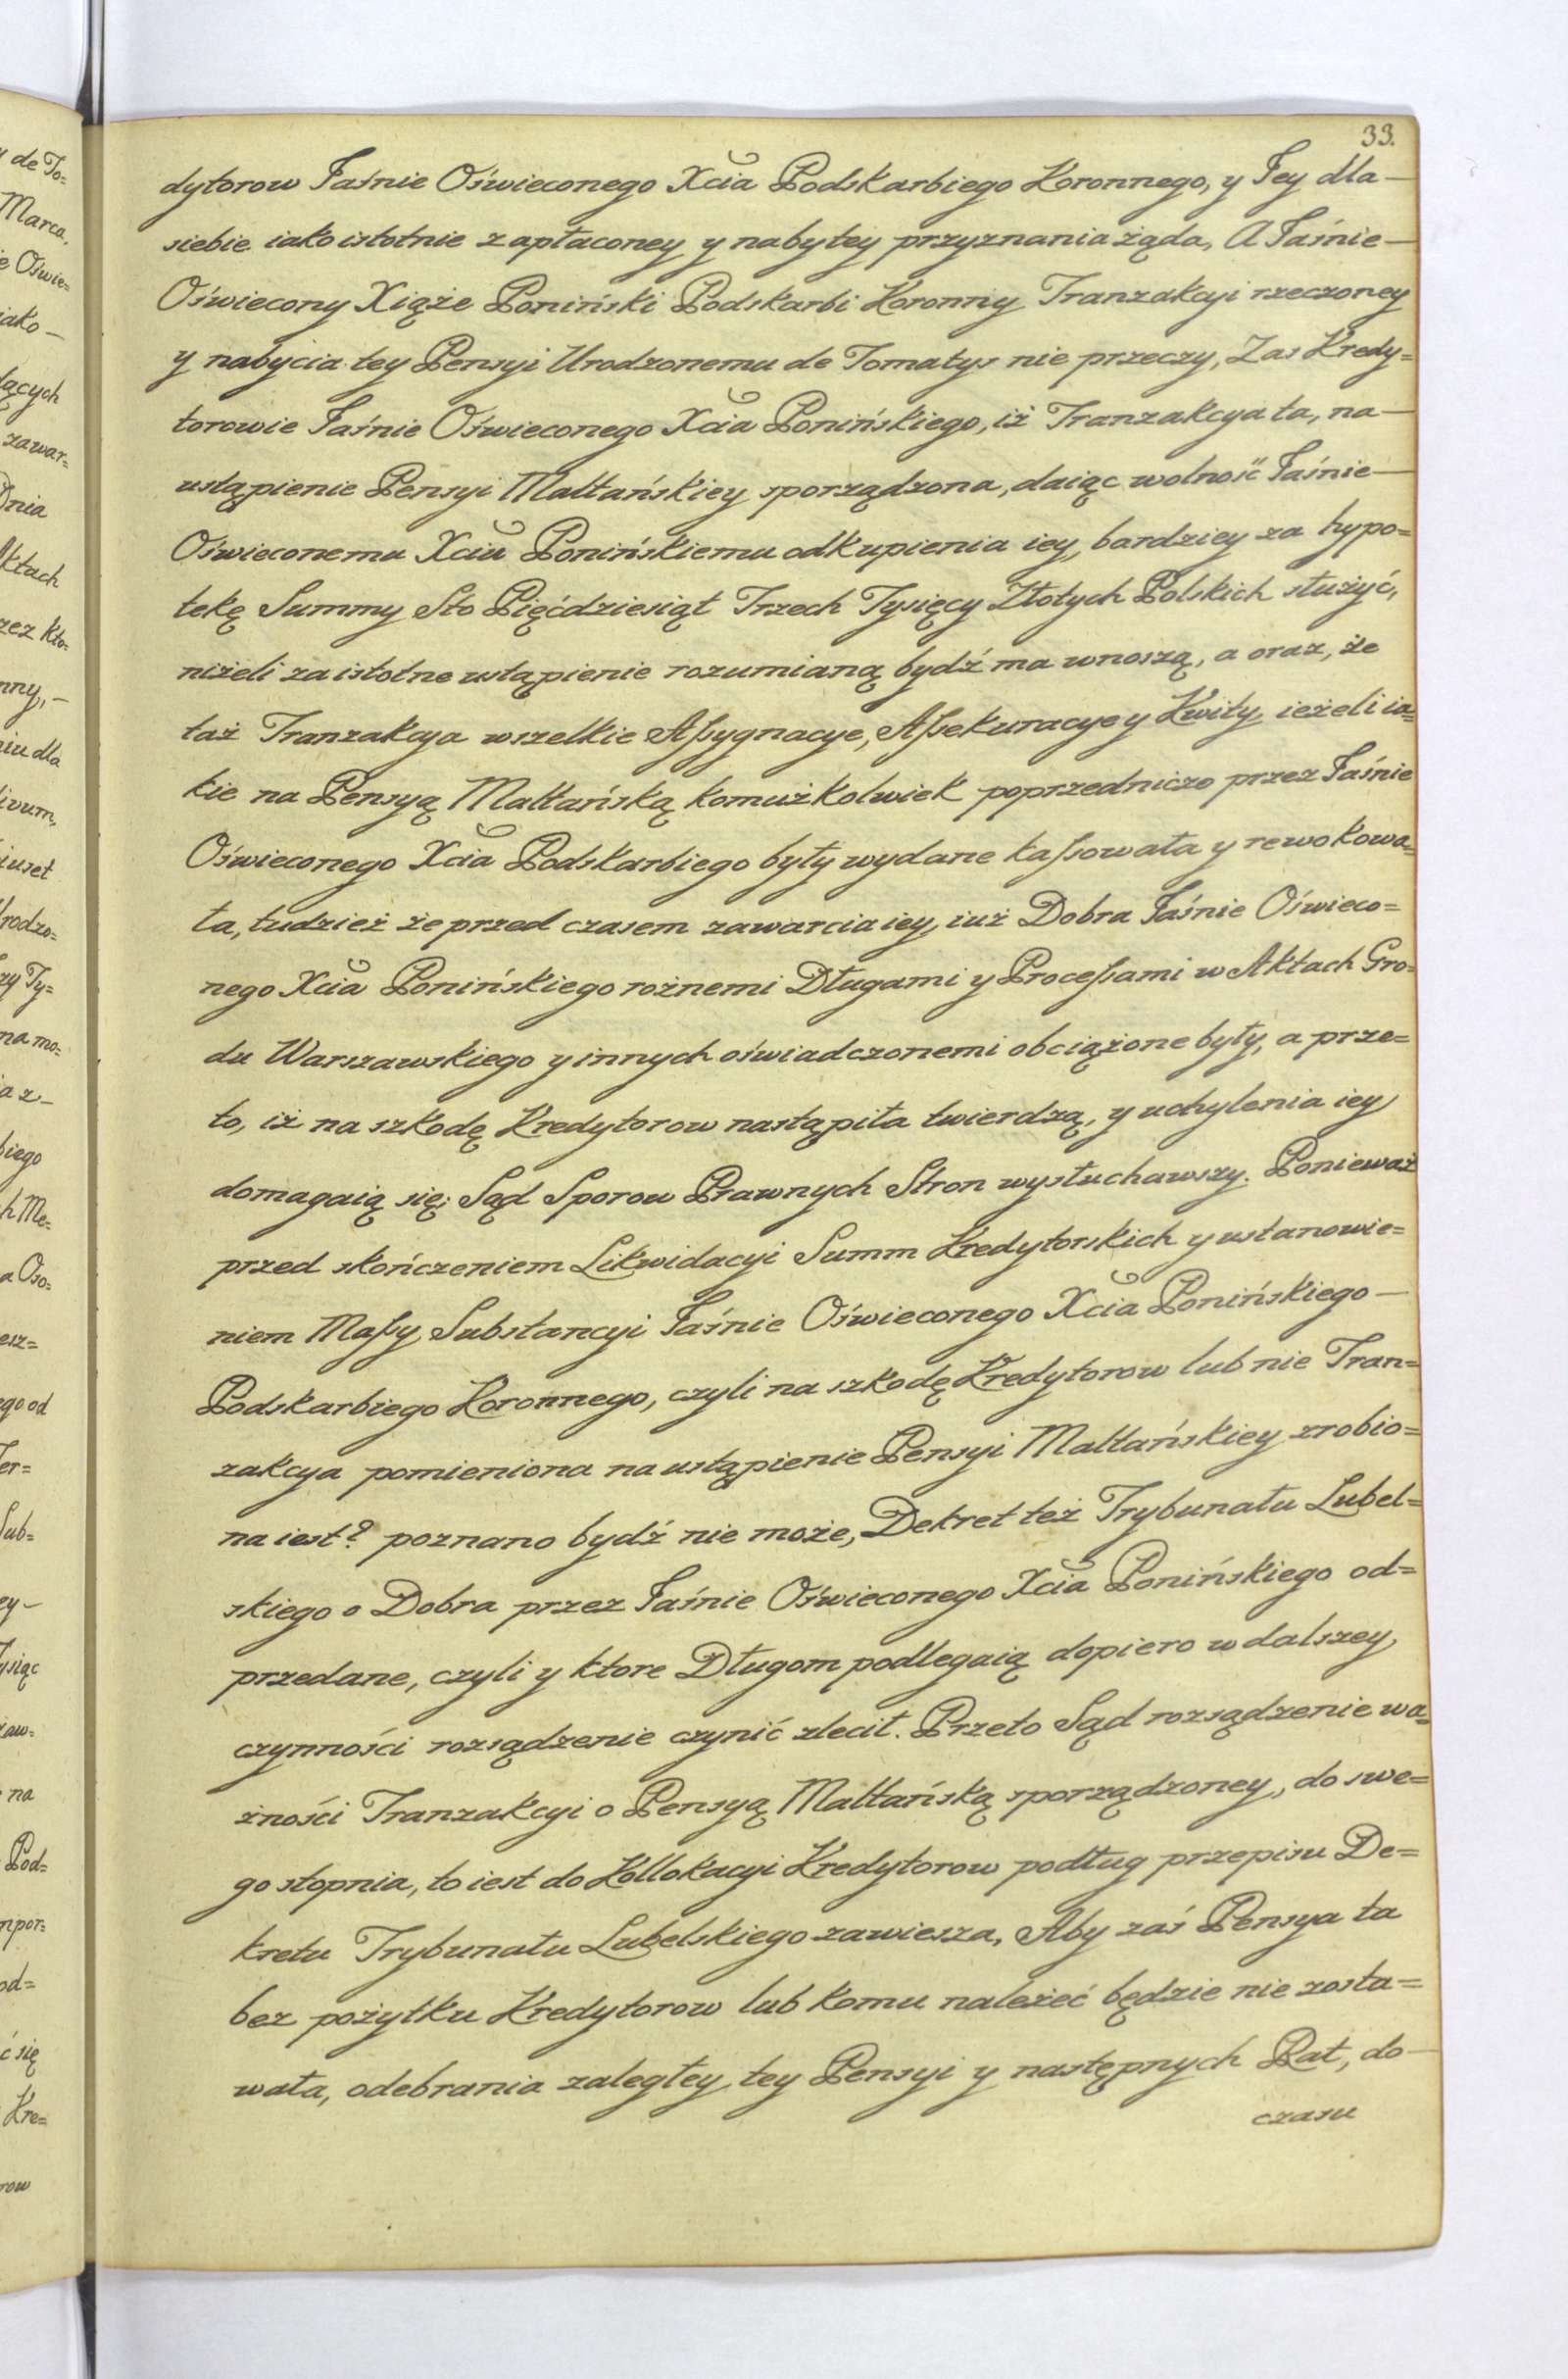 33.
dytorow Jaśnie Oświeconego Xcia Podskarbiego Koronnego, y Jey dla—
siebie iako istotnie zapłaconey y nabytey przyznania żąda, A Jaśnie—
Oświecony Xiąże Poniński Podskarbi Koronny Tranzakcyi rzeczoney
y nabycia tey Pensyi Urodzonemu de Tomatys nie przeczy, Zas Kredy=
torowie Jaśnie Oświeconego Xcia Ponińskiego, iż Tranzakcya ta, na—
ustąpienie Pensyi Maltańskiey sporządzona, daiąc wolność Jaśnie—
Oświeconemu Xciu Ponińskiemu odkupienia iey, bardziey za hypo=
tekę Summy Sto Pięćdziesiąt Trzech Tysięcy Złotych Polskich służyć,
niżeli za istotne ustąpienie rozumianą bydź ma wnoszą, a oraz, że
taż Tranzakcya wszelkie Aſsygnacye, Aſsekuracye y Kwity, ieżeli ia=
kie na Pensyą Maltańską komużkolwiek poprzedniczo przez Jaśnie
Oświeconego Xcia Podskarbiego były wydane kaſsowała y rewokowa=
ła, tudzież że przed czasem zawarcia iey, iuż Dobra Jaśnie Oświeco=
nego Xcia Ponińskiego rożnemi Długami y Proceſsami w Aktach Gro=
du Warszawskiego y innych oświadczonemi obciążone były, a prze=
to, iż na szkodę Kredytorow nastąpiła twierdzą, y uchylenia iey
domagaią się; Sąd Sporow Prawnych Stron wysłuchawszy. Ponieważ
przed skończeniem Likwidacyi Summ Kredytorskich y ustanowie=
niem Maſsy Substancyi Jaśnie Oświeconego Xcia Ponińskiego—
Podskarbiego Koronnego, czyli na szkodę Kredytorow lub nie Tran=
zakcya pomieniona na ustąpienie Pensyi Maltańskiey zrobio=
na iest? poznano bydź nie może, Dekret też Trybunału Lubel=
skiego o Dobra przez Jaśnie Oświeconego Xcia Ponińskiego od=
przedane, czyli y ktore Długom podlegaią dopiero w dalszey
czynności rozsądzenie czynić zlecił. Przeto Sąd rozsądzenie wa=
żności Tranzakcyi o Pensyą Maltańską sporządzoney, do swe=
go stopnia, to iest do Kollokacyi Kredytorow podług przepisu De=
kretu Trybunału Lubelskiego zawiesza, Aby zaś Pensya ta
bez pożytku Kredytorow lub komu należeć będzie nie zosta=
wała, odebrania zaległey tey Pensyi y następnych Rat, do—
czasu